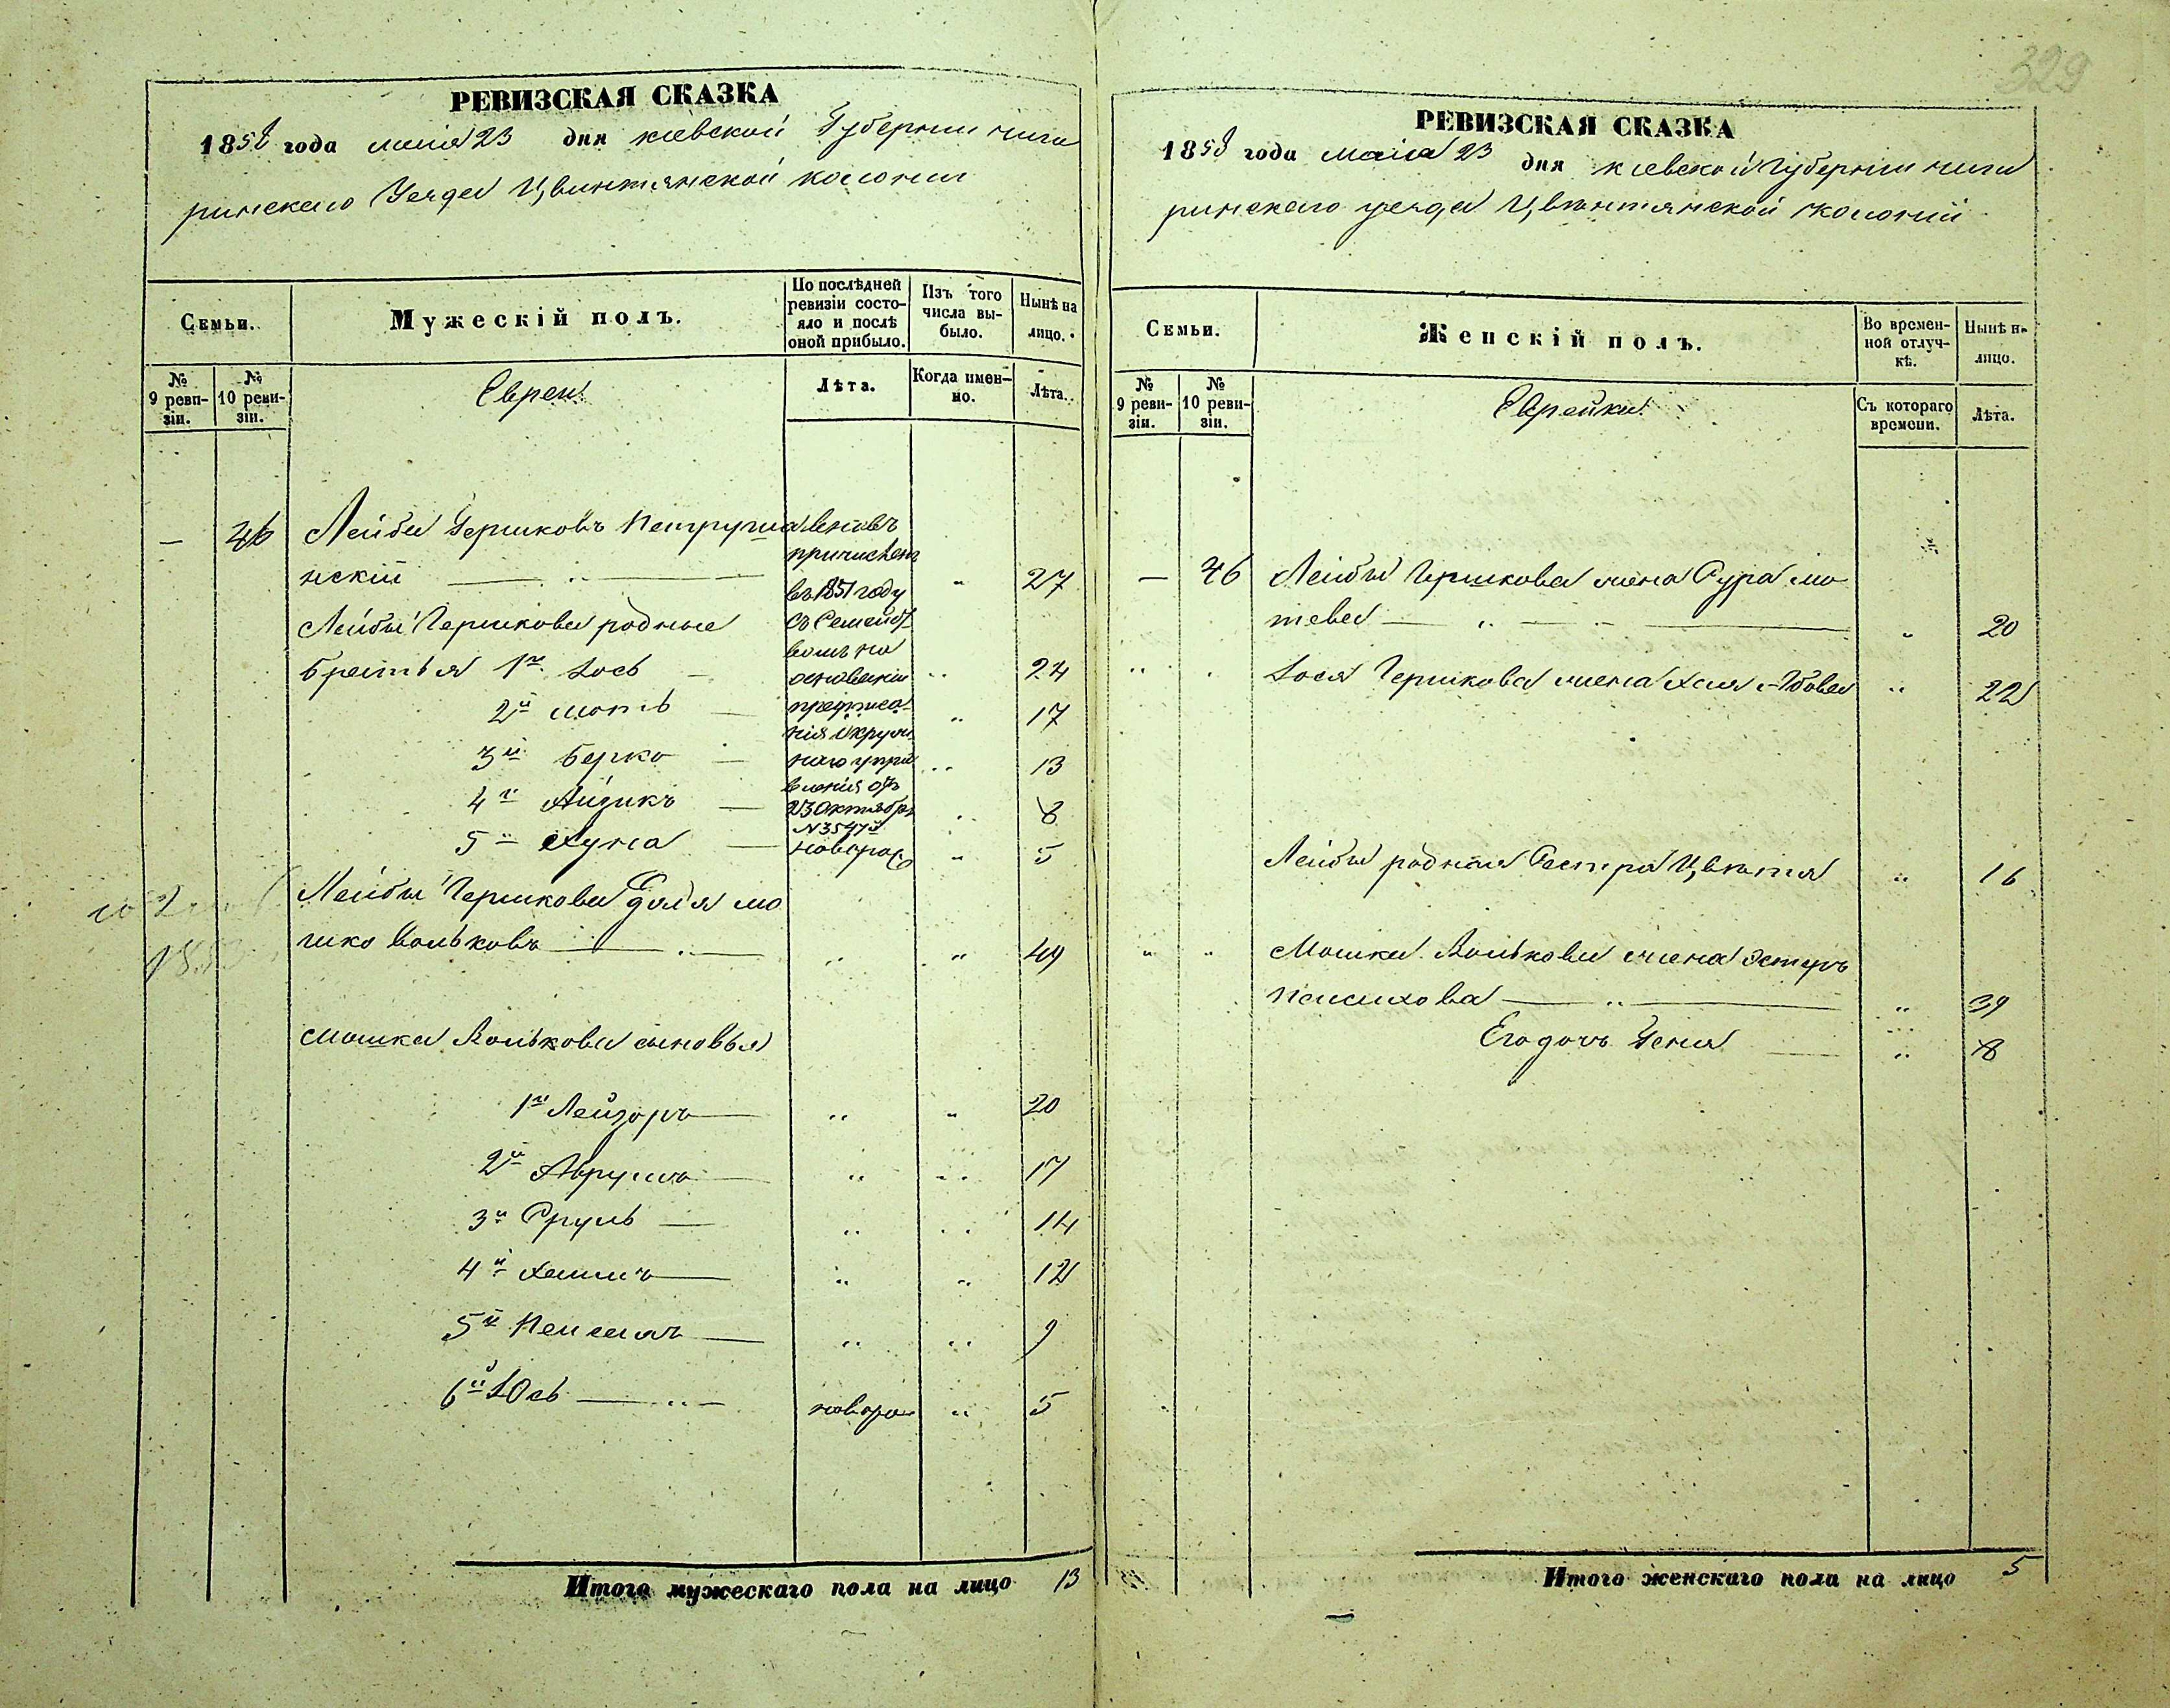 329
РЕВИЗСКАЯ СКАЗКА
1858 года маія 23 дня кіевской Губерніи чиги
ринскаго Уезда Цвинтянской колоніи
Семьи.
Мужескій полъ.
По послѣдней ревизіи состо-
яло и послѣ оной прибыло.
Изъ того числа вы-
было.
Нынѣ на лицо.
№ 9 реви-
зіи.
№ 10 реви-
зіи.
Евреи
Лѣта.
Когда имен-
но.
Лѣта.
— 46 Лейба Гершковъ Петруша
нскій 27
вновь
причислен
въ 1857 году
съ Семейст
вомъ на
основаніи
предписа
нія Окруж
наго упра
вленія отъ
23 Октября
Лейбы Гершкова родные
братья 1й Iось 24
2й мотъ 17
3й Берко 13
4й Айзикъ 8
5й Хуна новорож 5
Лейбы Гершкова дядя мо
шко Вольковъ 49
мошка Волькова сыновья
1й Лейзоръ 20
2й Аврумъ 17
3й Сруль 14
4й Хаимъ 12
5й Пейсахъ 9
6й Iось новорож 5
Итого мужескаго пола на лицо 13
РЕВИЗСКАЯ СКАЗКА
1858 года маіа 23 дня кіевской Губерніи чиги
ринскаго уезда Цвинтянской колоніи
Семьи.
Женскій полъ.
Во времен-
ной отлуч-
кѣ.
Нынѣ на лицо.
№ 9 реви-
зіи.
№ 10 реви-
зіи.
Еврейки
Съ котораго времени.
Лѣта.
— 46 Лейбы Гершкова жена Сура мо
това 20
Iося Гершкова жена Хая 22
Лейбы родная Сестра Цвѣтя 16
Мошка Волькова жена Эстеръ
Пейсахова 39
Его дочь Геня 8
Итого женскаго пола на лицо 5